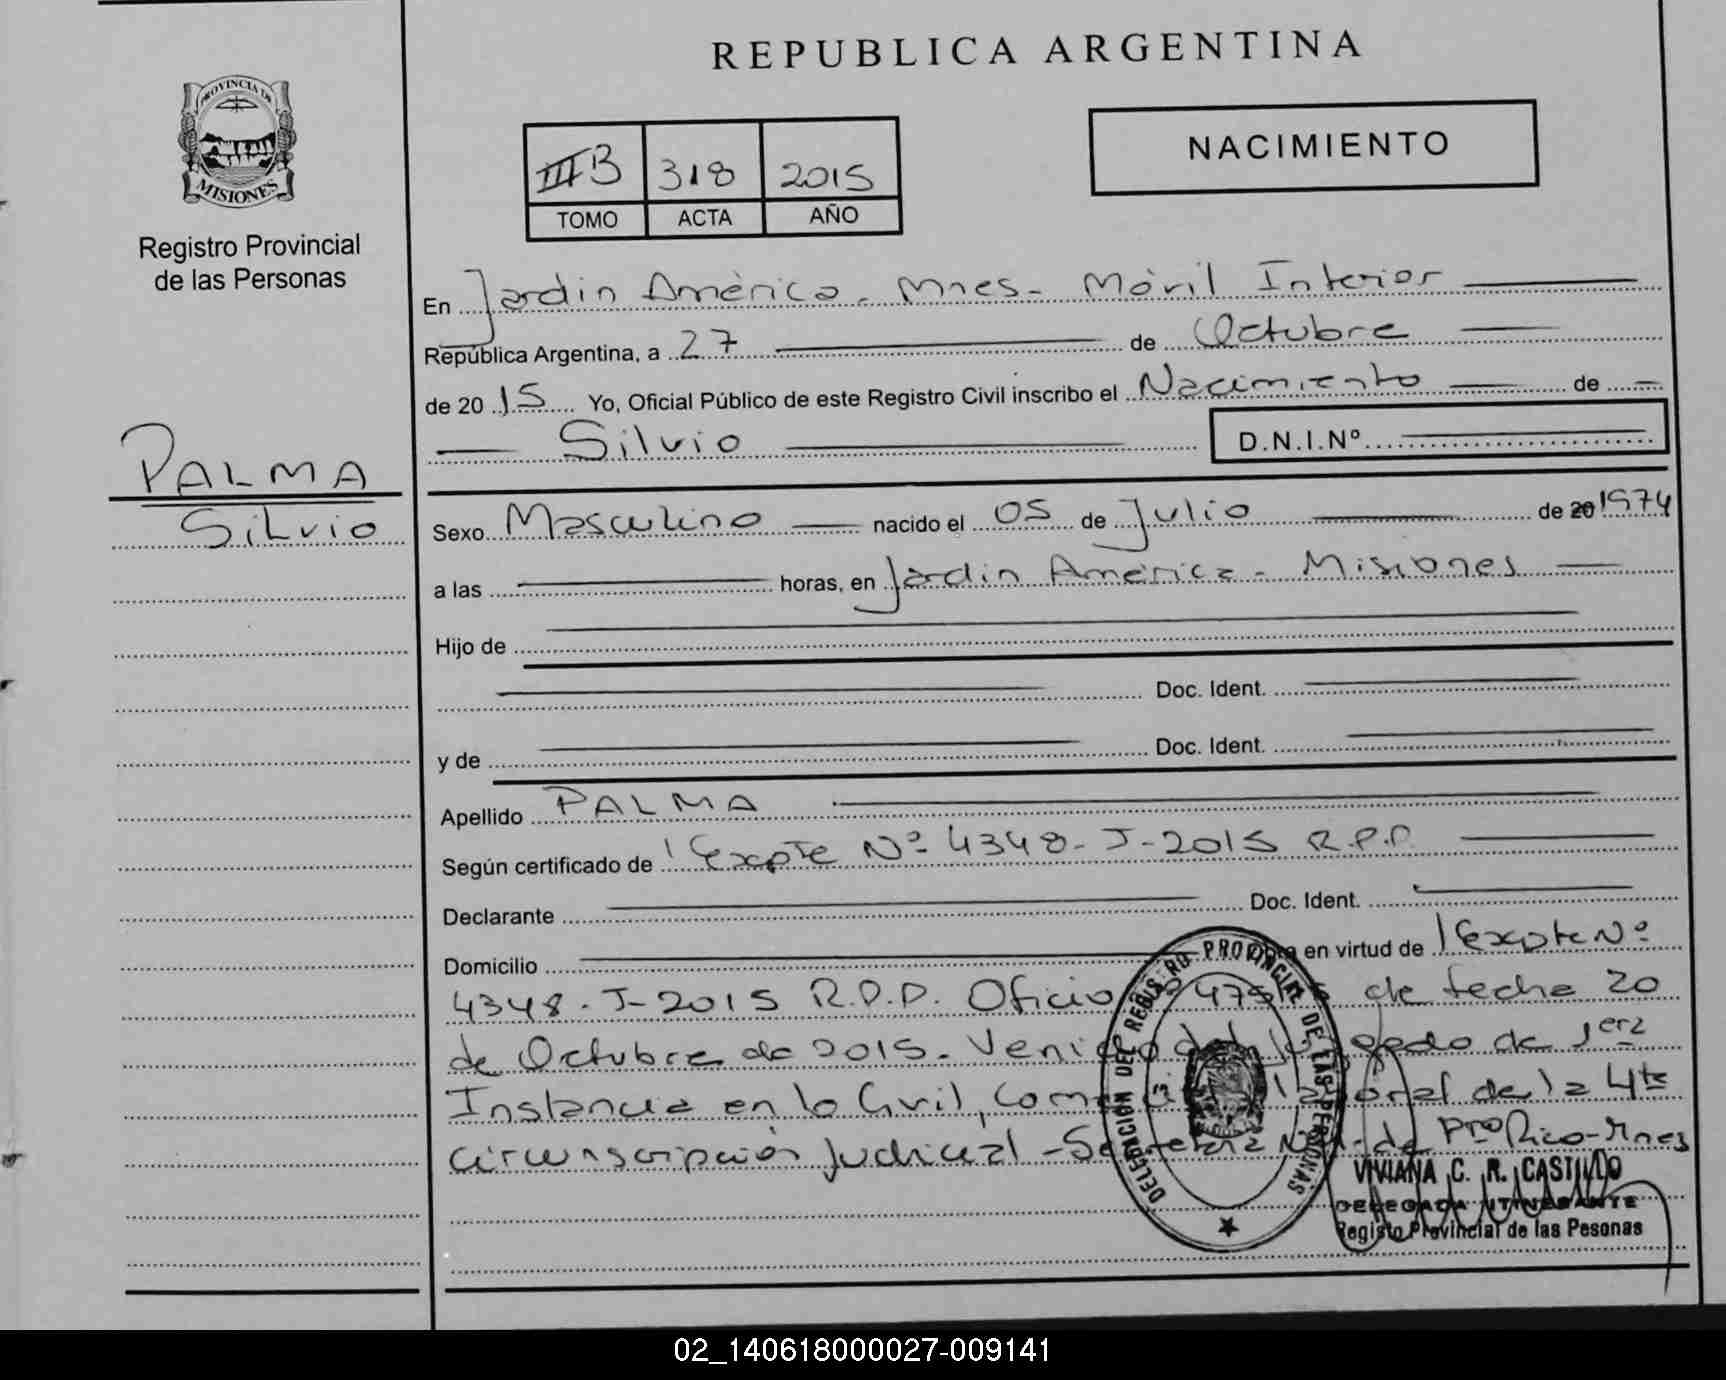 REPUBLICA ARGENTINA
PROVINCIA DE
MISIONES
Registro Provincial
de las Personas
NACIMIENTO
III B 318 2015
TOMO ACTA AÑO
En Jardin América - Mnes - Móvil Interior
República Argentina, a 27 de Octubre
de 20 15 Yo, Oficial Público de este Registro Civil inscribo el Nacimiento de
Silvio D.N.I.Nº
PALMA
Silvio
Sexo Masculino nacido el 05 de Julio de 20 1974
a las horas, en Jardin América - Misiones
Hijo de
Doc. Ident.
y de Doc. Ident.
Apellido PALMA
Según certificado de Expte Nº 4348-J-2015 R.P.P.
Declarante Doc. Ident.
Domicilio en virtud de Expte Nº
4348-J-2015 R.P.P. Oficio de fecha 20
de Octubre de 2015. Venido del Juzgado de 1era
Instancia en lo Civil, Laboral de la 4ta
circunscripción Judicial - Secretaria de Pto Rico - Mnes
DELEGACIÓN DEL REGISTRO PROVINCIAL DE LAS PERSONAS
VIVIANA C. R. CASTILLO
DELEGADA ITINERANTE
Registo Provincial de las Pesonas
02_140618000027-009141